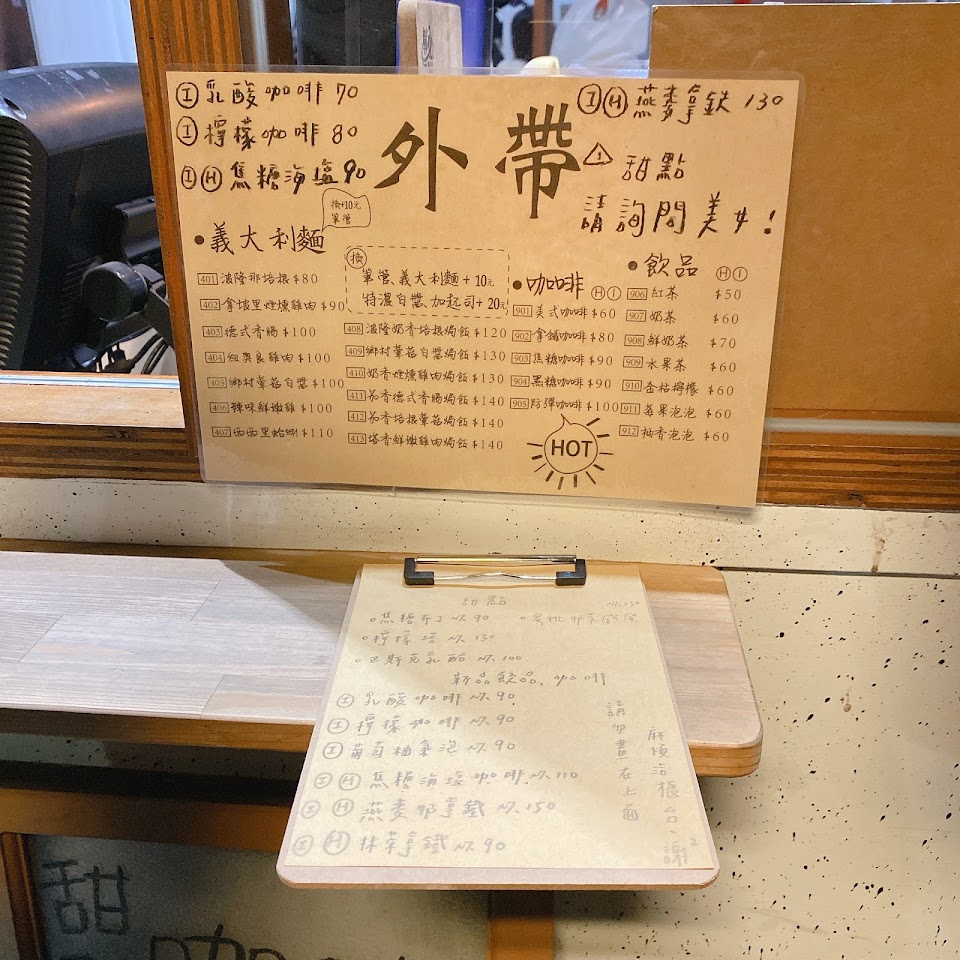 Ⓘ 乳酸咖啡 70
Ⓘ 檸檬咖啡 80
Ⓘ Ⓗ 焦糖海塩 90
外帶
Ⓘ Ⓗ 燕麥拿鉄 130
⚠ 甜點
請詢問美女!
•義大利麵
換+10元
筆管
401 波隆那培根 $80
402 拿坡里煙燻雞肉 $90
403 德式香腸 $100
404 紐奧良雞肉 $100
405 鄉村蕈菇白醬 $100
406 辣味鮮嫩雞 $100
407 西西里蛤蜊 $110
換
筆管、義大利麵+10元
特濃白醬、加起司+20元
408 波隆奶香培根焗飯 $120
409 鄉村蕈菇白醬焗飯 $130
410 奶香煙燻雞肉焗飯 $130
411 茄香德式香腸焗飯 $140
412 茄香培根蕈菇焗飯 $140
413 塔香鮮嫩雞肉焗飯 $140
•咖啡 Ⓗ Ⓘ
901 美式咖啡 $60
902 拿鐵咖啡 $80
903 焦糖咖啡 $90
904 黑糖咖啡 $90
905 防彈咖啡 $100
HOT
•飲品 Ⓗ Ⓘ
906 紅茶 $50
907 奶茶 $60
908 鮮奶茶 $70
909 水果茶 $60
910 金桔檸檬 $60
911 蘋果泡泡 $60
912 柚香泡泡 $60
甜點
。焦糖布丁 NT.90
。檸檬塔 NT.130
。巴斯克乳酪 NT.100
NT.230
新品飲品、咖啡
Ⓘ 乳酸咖啡 NT.90
Ⓘ 檸檬咖啡 NT.90
Ⓘ 葡萄柚氣泡 NT.90
Ⓘ Ⓗ 焦糖海塩咖啡 NT.110
Ⓘ Ⓗ 燕麥那拿鐵 NT.150
Ⓘ Ⓗ 抹茶拿鐵 NT.90
請勿畫在上面
麻煩洽櫃台、謝2
甜
咖